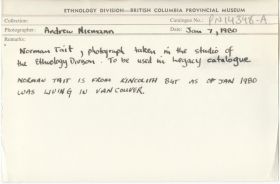 ETHNOLOGY DIVISION—BRITISH COLUMBIA PROVINCIAL MUSEUM
Collection: Catalogue No.: PN14348-A
Photographer: Andrew Niemann Date: Jan 7, 1980
Remarks:
Norman Tait, photograph taken in the studio of
the Ethnology Division. To be used in Legacy catalogue
NORMAN TAIT IS FROM KINCOLITH BUT AS OF JAN 1980
WAS LIVING IN VANCOUVER.